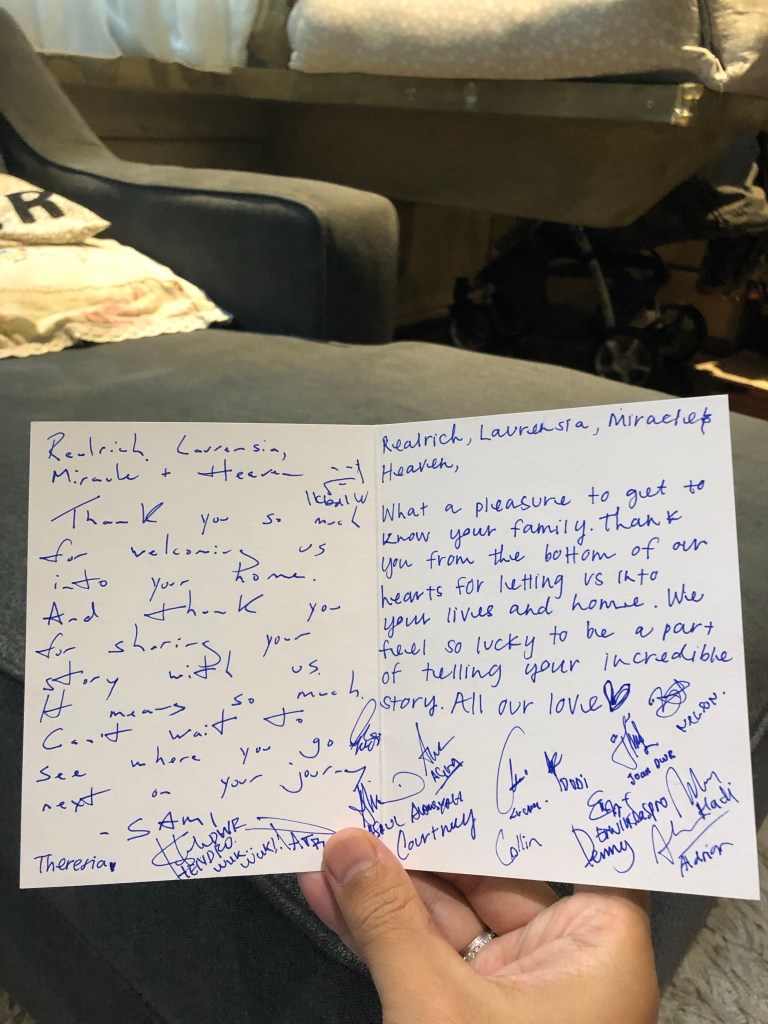 R
Realrich, Laurensia,
Miracle + Heaven
Thank you so much
for welcoming us
into your home.
And thank you
for sharing your
story with us.
It means so much.
Can't wait to
see where you go
next on your journey
- SAMI
Theresia
HENDRO.
WUK.. WUK!!
Realrich, Laurensia, Miracle &
Heaven,
What a pleasure to get to
know your family. Thank
you from the bottom of our
hearts for letting us into
your lives and home. We
feel so lucky to be a part
of telling your incredible
story. All our love
NELSON.
JOAN DWE
Courtney
Collin
Denny
Hadi
Adrian